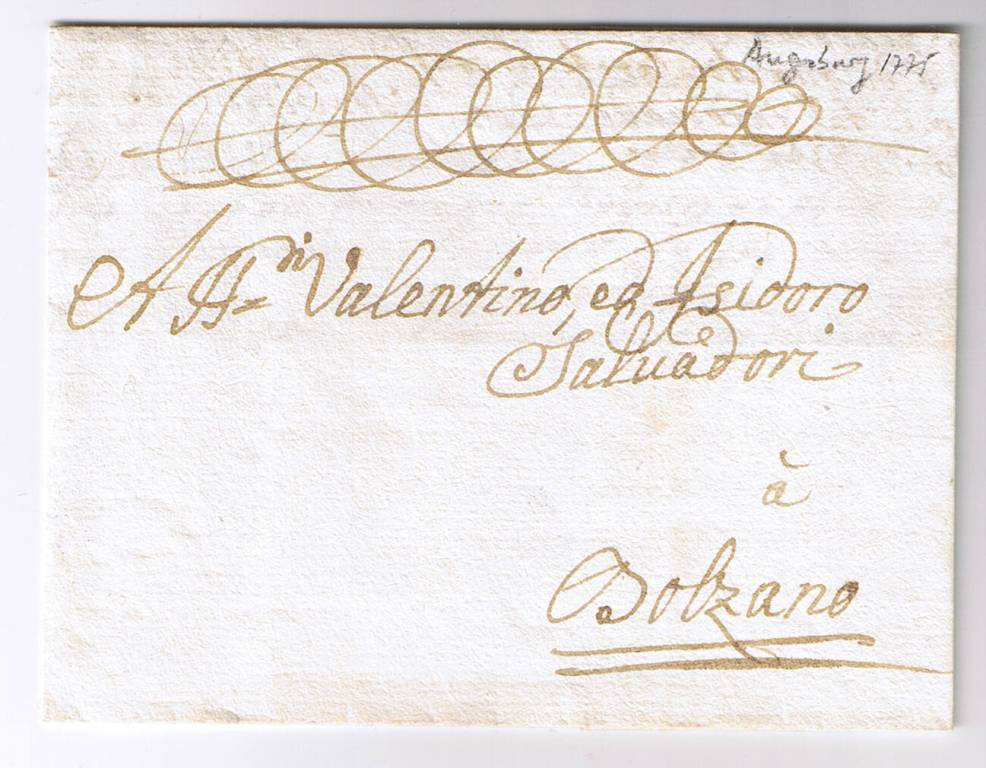 Augsburg 1775
A Hn Valentino, ed Isidoro
Salvadori
à
Bolzano